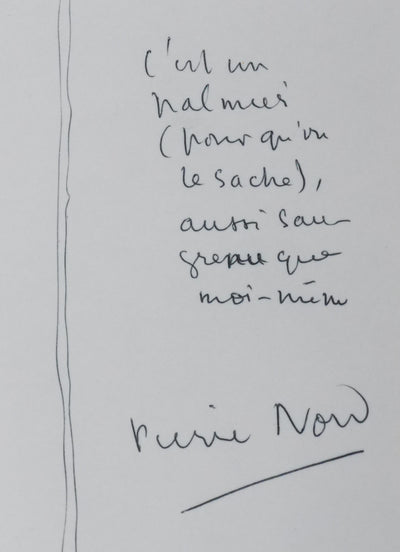 c'est un
palmier
(pour qu'on
le sache),
aussi sau-
grenu que
moi-même
Pierre